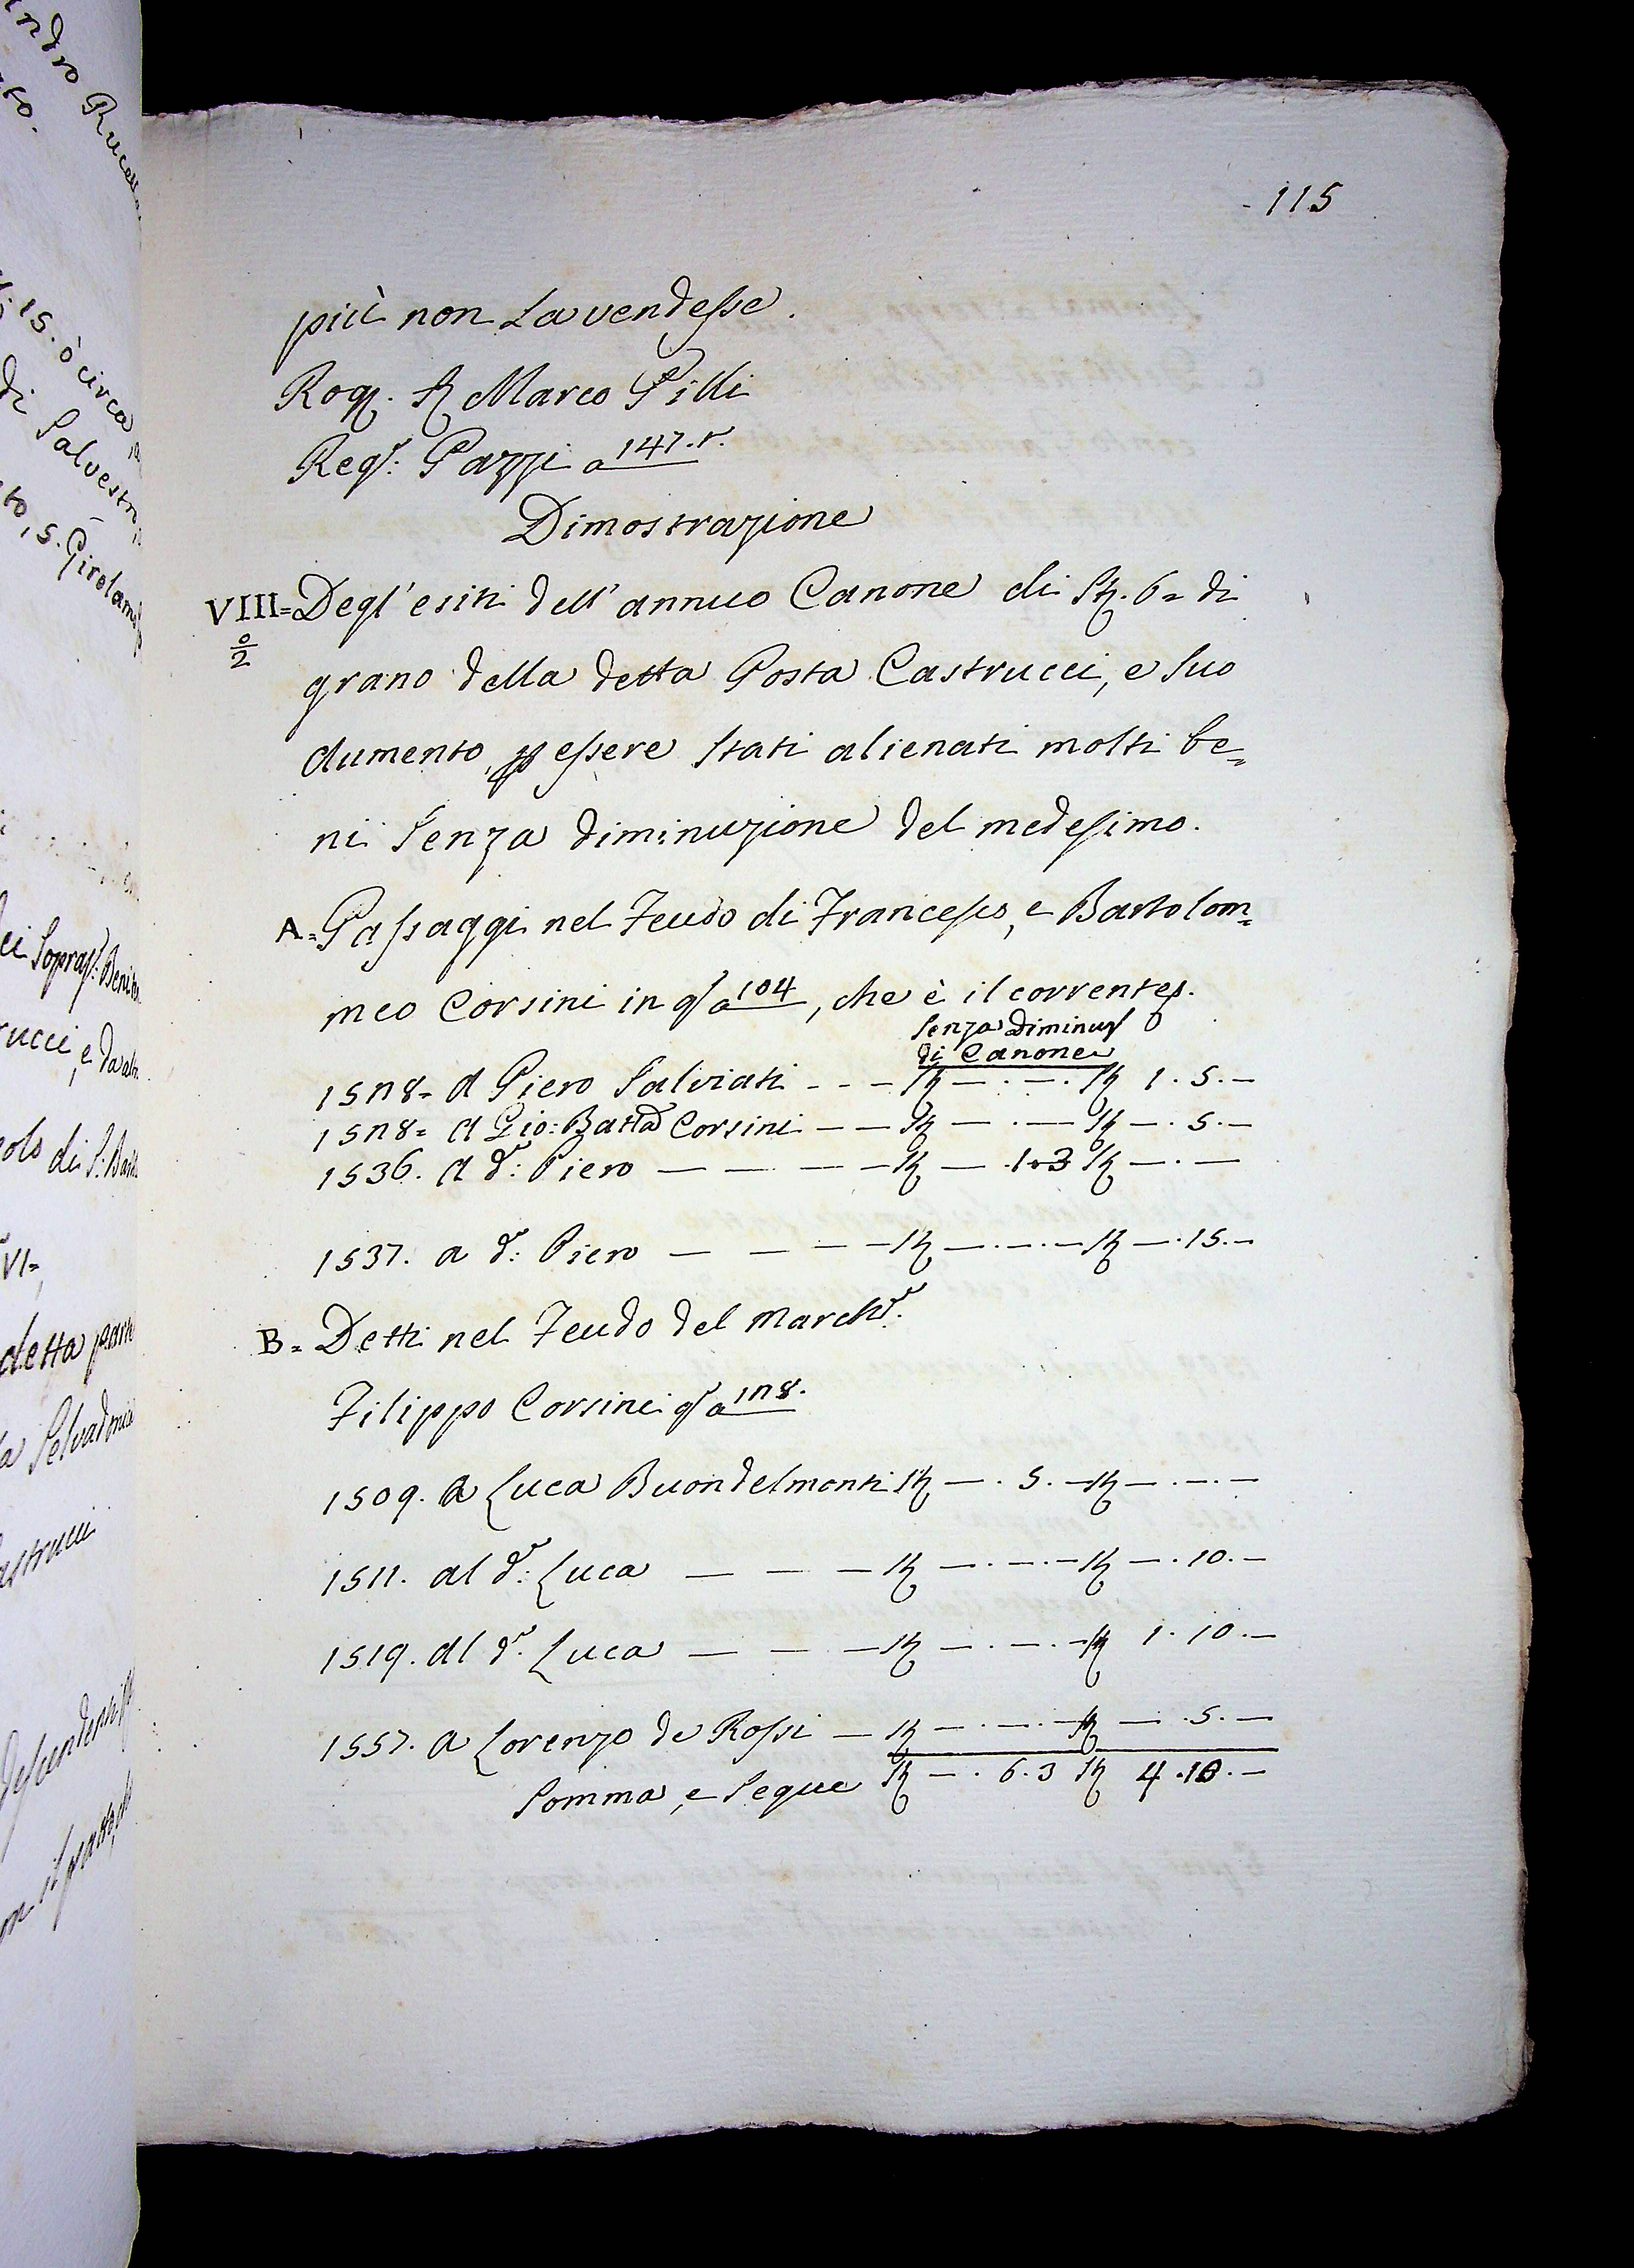 ndro Rucell
to.
15. ò circa
di Salvestro
to, S. Girolamo
ei Sopras: Beni
rucci, e da altr
olo di S. Bart
VI=
detta parte
la Selvad
astrucci
Descendenti
115
più non La vendesse.
Rog. S. Marco Pilli
Reg.: Pazzi a 147. r.
Dimostrazione
VIII= Degl'esiti dell'annuo Canone di St. 6= di
o/2
grano della detta Posta Castrucci, e suo
aumento, p essere stati alienati molti be=
ni senza diminuzione del medesimo.
A= Passaggi nel Feudo di Francesco, e Bartolom=
meo Corsini in q. a 104, che è il corrente.
senza Diminuz
di Canone
1508= A Piero Salviati - - - St — . — . St 1 . 5. —
1508= A Gio: Batta Corsini — — St — . — St — . 5. —
1536. A d.: Piero — — — — St — . 1.3 St — . —
1537. a d.: Piero — — — — St — . — . — St — . 15. —
B= Detti nel Feudo del March.
Filippo Corsini q. a 108.
1509. A Luca Buondelmonti St — . 5. — St — . — . —
1511. al d.: Luca — — — St — . — . — St — . 10. —
1519. Al d. Luca — — — St — . — . — St 1. 10. —
1557. A Lorenzo de Rossi — St — . — . — St — . 5. —
Somma, e segue St — . 6. 3 St 4 . 10. —